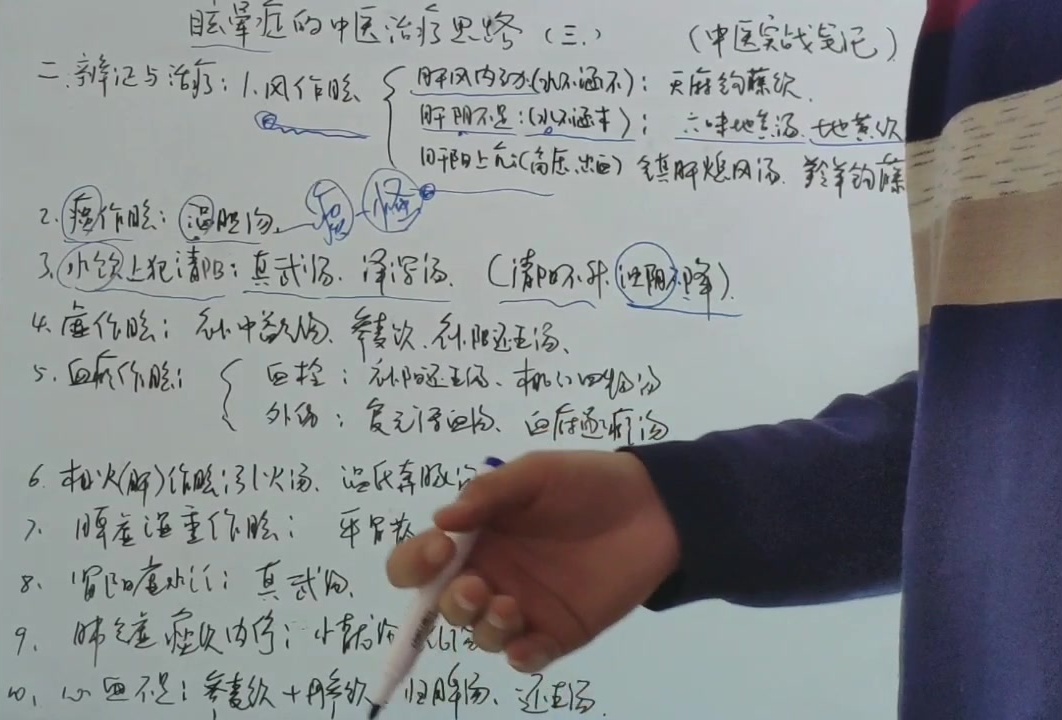 眩晕症的中医治疗思路（三.） （中医实战笔记）
二.辨证与治疗：1.风作眩
肝风内动（水不涵木）：天麻钩藤饮.
肝阴不足：（水不涵木）；六味地黄汤.七地黄饮
肝阳上亢：（高压.出血）镇肝熄风汤.羚羊钩藤
2.痰作眩：温胆汤. 痰 怪
3.水饮上犯清阳：真武汤.泽泻汤.（清阳不升.浊阴不降）.
4.虚作眩；补中益气汤.参麦饮.补阳还五汤、
5.血瘀作眩；
血栓：补阳还五汤、桃红四物汤
外伤：复元活血汤、血府逐瘀汤
6.相火（肝）作眩；引火汤.温氏奔豚汤
7、脾虚湿重作眩：平胃散
8、肾阳虚水泛；真武汤.
9、肺气虚痰饮内停；小青龙
10、心血不足；参麦饮+丹参饮 归脾汤、还五汤.